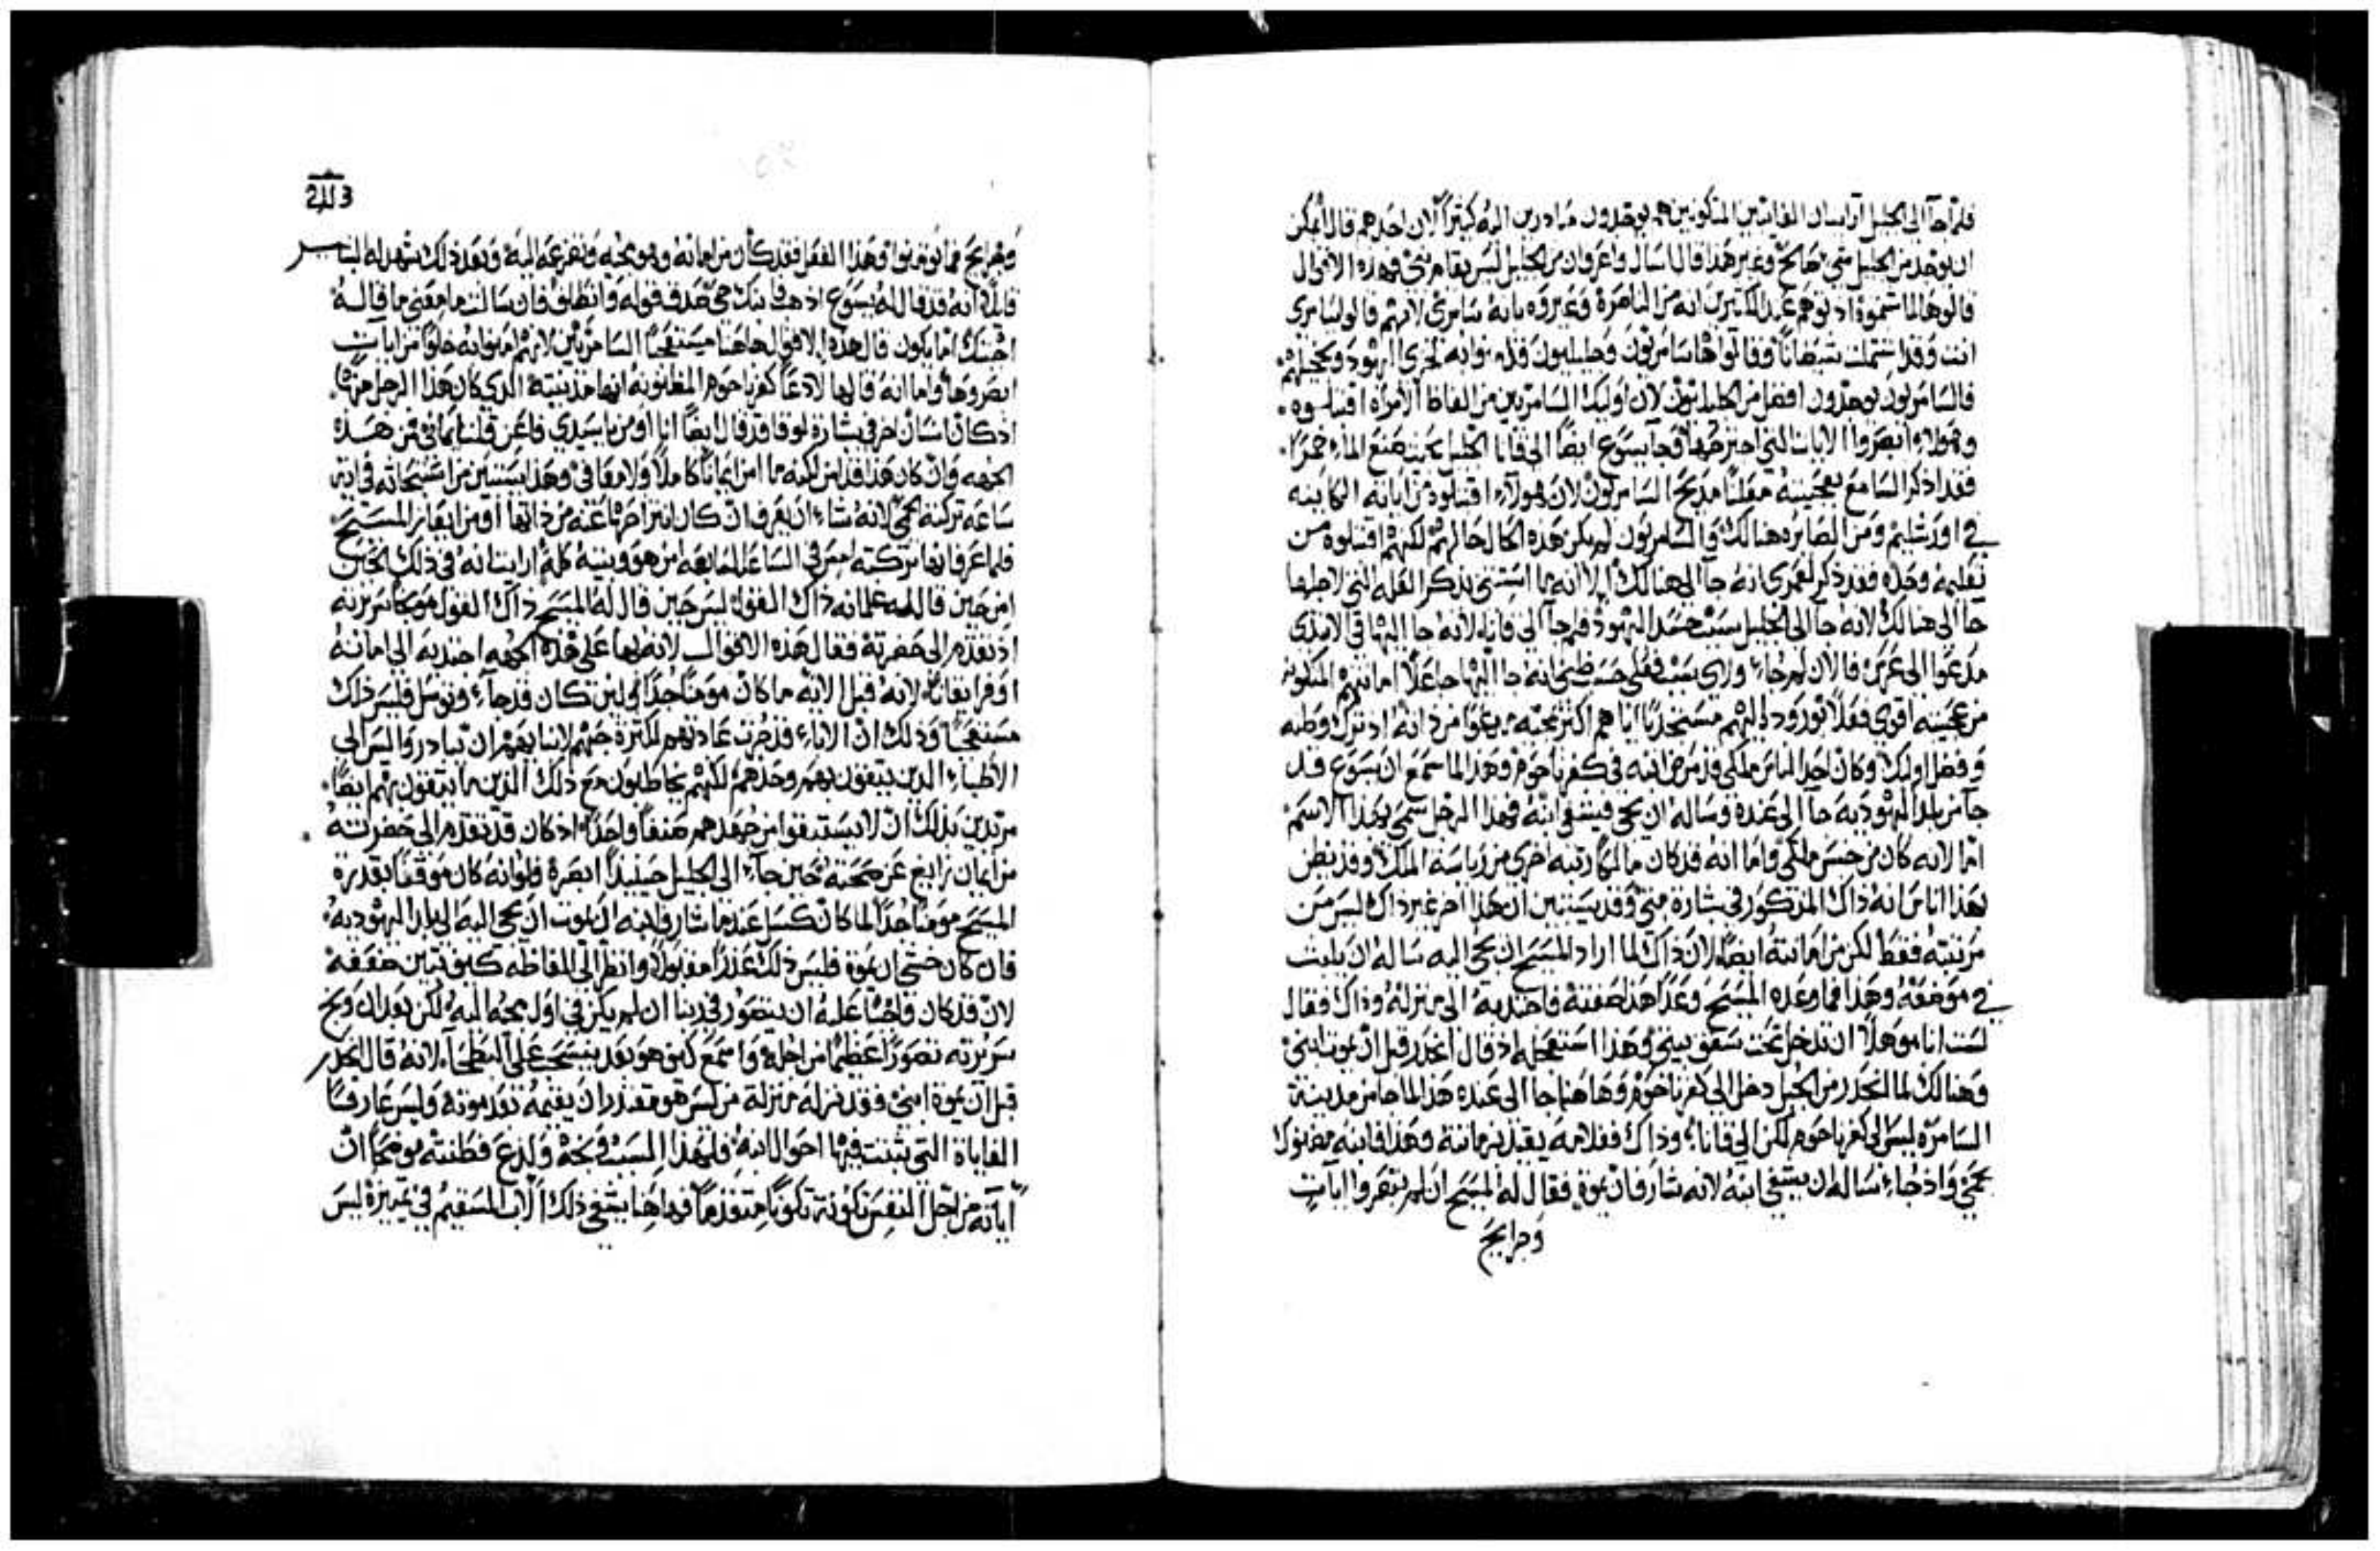 فلما جآ الى الجليل آرايسان الغايتين المذكورين هم يوجدون مبادرين اليه كثيرًا لان احدهم قال ايمكن
ان يوجد من الجليل شي صالح وغير هذا قال اسال واعرف ان من الجليل ليس يقام نبي وهذه الاقوال
قالوها لما شتموه اذ توهم عند الكثيرين انه من الناصره وعيروه بانه سامري لانهم قالوا سامري
انت وقد اشتملت شيطانًا وقالوا ها سامريون وجليليون قد امنوا به لخزي اليهود وتخجيلهم
فالسامريون يوجدون افضل من الجليليون لان اوليك السامريين من الفاظ الامراه اقتبلوه
وهولاء ابصروا الايات التي اجترحها وجآ يسوع ايضًا الى قانا الجليل حيث صنع الماء خمرًا
فقد اذكر السامع بعجيبته معلنًا مديح السامريون لان هولاء اقتبلوه من اياته الكاينه
في اورشليم ومن الصايره هنالك والسامريون لم يكن هذه الحال حالهم لكنهم اقتبلوه من
تعليمه وحده فقد ذكر لعمري انه جآ الى هنالك الا انه ما استثنى بذكر العله التي لاجلها
جآ الى هنالك لانه جآ الى الجليل بسبب حسد اليهود فلم جآ الى قانا لانه جا اليها في الابتدي
مدعوا الى عرس فالان لم جاء وراي سبب فعلى حسب ظني انه جا اليها جاعلًا امانتهم المتكونه
من عجيبته اقوى فعلًا بوروده اليهم مستجذبًا اياهم اكثر بمجيه مدعوا من ذاته اذ ترك وطنه
وفضل اوليك وكان احد الناس ملكي قد مرض ابنه في كفرناحوم وهذا لما سمع ان يسوع قد
جآ من بلد اليهوديه جآ الى عنده وساله ان يجي فيشفي ابنه فهذا الرجل سمي بهذا الاسم
اما لانه كان من جنس ملكي واما انه قد كان مالكًا رتبه اخرى من رياسة الملك وقد يظن
بهذا اناس انه ذاك المذكور في بشارة متي وقد يستبين ان هذا اخر غير ذاك ليس من
مرتبته فقط لكن من امانته ايضًا لان ذاك لما اراد المسيح ان يجي اليه ساله ان يلبث
في موضعه وهذا فما وعده المسيح وعدًا هذا صفته فاجتذبه الى منزله وذاك فقال
لست انا موهلًا ان تدخل تحت سقف بيتي وهذا استعجله اذ قال انحدر قبل ان يموت ابني
وهنالك لما انحدر من الجبل دخل الى كفرناحوم وهاهنا جا الى عنده هذا لما جا من مدينة
السامره ليس الى كفرناحوم لكن الى قانا وذاك فغلامه يقيد بزمانته وهذا فابنه مضنوكًا
بحمى واذ جاء ساله ان يشفي ابنه لانه شارف ان يموت فقال له المسيح ان لم تبصروا ايات
وجرايح
وجرايح فما تومنوا وهذا الفعل فقد كان من امانته وهو مجيه وتضرعه اليه وبعد ذلك شهد له البشير
قايلًا انه قد قال له يسوع اذهب ابنك حي صدق قوله وانطلق فان سالت ما معنى ما قاله
اجبتك اما يكون قال هذه الاقوال هاهنا مستعجبًا السامريين لانهم امنوا به خلوًا من ايات
ابصروها واما انه قالها لادعًا كفرناحوم المظنونه انها مدينته الذي كان هذا الرجل منها
اذ كان انسان اخر في بشارة لوقا قد قال ايضًا انا اومن يا سيدي فاعن قلة ايماني من هذه
الجهه وان كان هذا قد امن لكنه ما امن ايمانًا كاملًا ولا معافي وهذا يستبين من استبحاثه في اية
ساعه تركته الحمى لانه شاء ان يعرف ان كان انصرافها عنه من ذاتها او من ايعاز المسيح
فلما عرف انها تركته امس في الساعه السابعه امن هو وبيته كله ارايت انه في ذلك الحين
امن حين قال له غلمانه ذاك القول ليس حين قال له المسيح ذاك القول موبخًا سريرته
اذ تقدم الى حضرته فقال هذه الاقوال لانه بها على هذه الجهه اجتذبه الى امانته
اوفر ايقانًا لانه قبل الايه ما كان مومنًا جدًا ولين كان قد جاء وتوسل فليس ذلك
مستعجبًا وذلك ان الاباء قد جرت عادتهم لكثرة حبهم لابنايهم ان يبادروا ليس الى
الاطباء الذين يثقون بهم وحدهم لكنهم يخاطبون مع ذلك الذين ما يثقون بهم ايضًا
مريدين بذلك ان لا يستبقوا من جهدهم صنفًا واحدًا اذ كان قد تقدم الى حضرته
من ايمان زايغ عن صحته حين جاء الى الجليل حينيذًا ابصره فلو انه كان موقنًا بقدرة
المسيح مومنًا جدًا لما كان كسل عندما شارف ابنه ان يموت ان يجي اليه الى بلد اليهوديه
فان كان خشي ان يموت فليس ذلك عذرًا مقبولًا وانظر الى الفاظه كيف تبين ضعفه
لان قد كان واجبًا عليه ان يتصور في ربنا ان لم يكن في اول مجيه اليه لكن بعد ان وبخ
سريرته تصورًا عظيمًا من اجله واسمع كيف هو بعد ينسحب على البطحآ لانه قال انحدر
قبل ان يموت ابني وقد نزله منزلة من ليس هو مقتدرًا ان يقيمه بعد موته وليس عارفًا
الغاياة التي تثبت فيها احوال ابنه فلهذا السبب وبخه ولدغ فطنته موضحًا ان
اياته من اجل النفس تكونت تكونًا متقدمًا فهاهنا يشفي ذلك الاب السقيم في تمييزه ليس